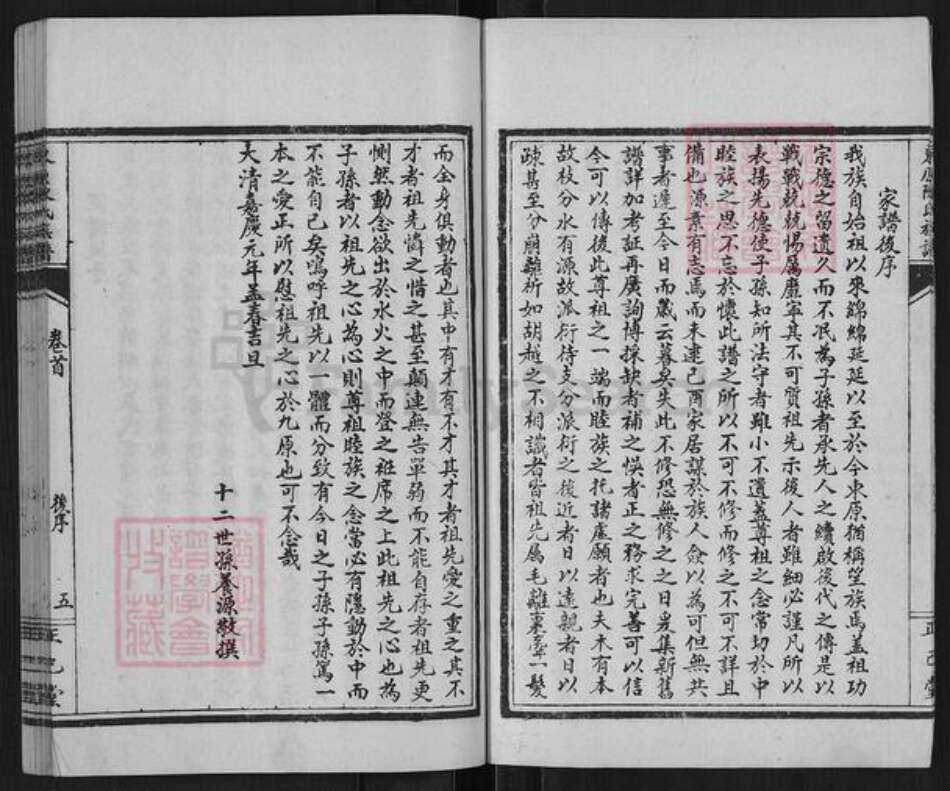 家譜後序
我族自始祖以來綿綿延延以至於今東原猶稱望族焉蓋祖功
宗德之留遺久而不泯為子孫者承先人之緒啟後代之傳是以
戰戰兢兢惕厲靡寧其不可質祖先示後人者雖細必謹凡所以
表揚先德使子孫知所法守者雖小不遺蓋尊祖之念常切於中
睦族之思不忘於懷此譜之所以不可不修而修之不可不詳且
備也源素有志焉而未逮己酉家居謀於族人僉以為可但無共
事者遲至今日而歲云暮矣失此不修恐無修之之日爰集新舊
譜詳加考証再廣詢博採缺者補之悞者正之務求完善可以信
今可以傳後此尊祖之一端而睦族之托諸虛願者也夫木有本
故枝分水有源故派衍待支分派衍之後近者日以遠親者日以
疎甚至分崩離析如胡越之不相識者皆祖先屬毛離裏牽一髮
而全身俱動者也其中有才有不才其才者祖先愛之重之其不
才者祖先憐之惜之甚至顛連無告單弱而不能自存者祖先更
惻然動念欲出於水火之中而登之袵席之上此祖先之心也為
子孫者以祖先之心為心則尊祖睦族之念當必有隱動於中而
不能自已矣嗚呼祖先以一體而分致有今日之子孫子孫篤一
本之愛正所以慰祖先之心於九原也可不念哉
大清嘉慶元年孟春吉旦
十二世孫養源敬撰
卷首
後序
五
正己堂
正己堂
FamilySearch